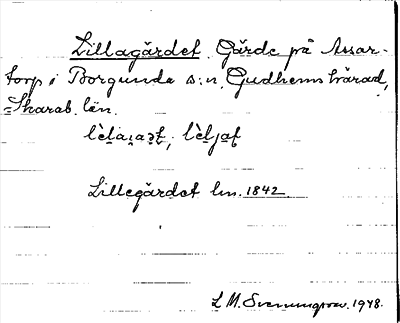 Lillagärdet. Gärde på Assar-
torp i Borgunda s:n, Gudhems härad,
Skarab. län.
Lillegärdet lm. 1842
L. M. Svenungsson. 1948.